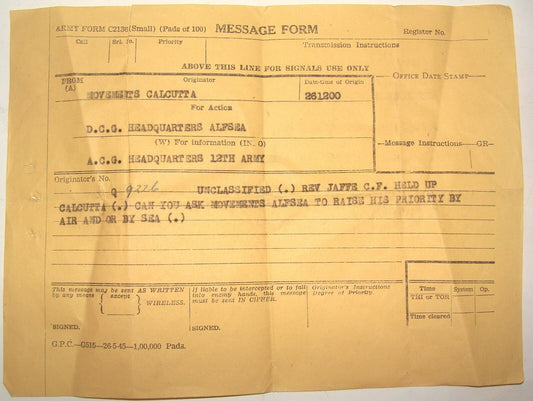 ARMY FORM C2136(Small) (Pads of 100) MESSAGE FORM Register No.
Call Srl. No. Priority Transmission Instructions
ABOVE THIS LINE FOR SIGNALS USE ONLY
FROM (A) Originator Date-time of Origin Office Date Stamp
MOVEMENTS CALCUTTA 261200
For Action
D.C.G. HEADQUARTERS ALFSEA
(W) For information (IN. O) Message Instructions GR
A.C.G. HEADQUARTERS 12TH ARMY
Originator's No.
Q 9226 UNCLASSIFIED (.) REV JAFFE C.F. HELD UP
CALCUTTA (.) CAN YOU ASK MOVEMENTS ALFSEA TO RAISE HIS PRIORITY BY
AIR AND/OR BY SEA (.)
This message may be sent AS WRITTEN If liable to be intercepted or to fall Originator's Instructions Time System Op.
by any means except WIRELESS. into enemy hands, this message Degree of Priority. THI or TOR
must be sent IN CIPHER. Time cleared
SIGNED. SIGNED.
G.P.C.—G515—26-5-45—1,00,000 Pads.